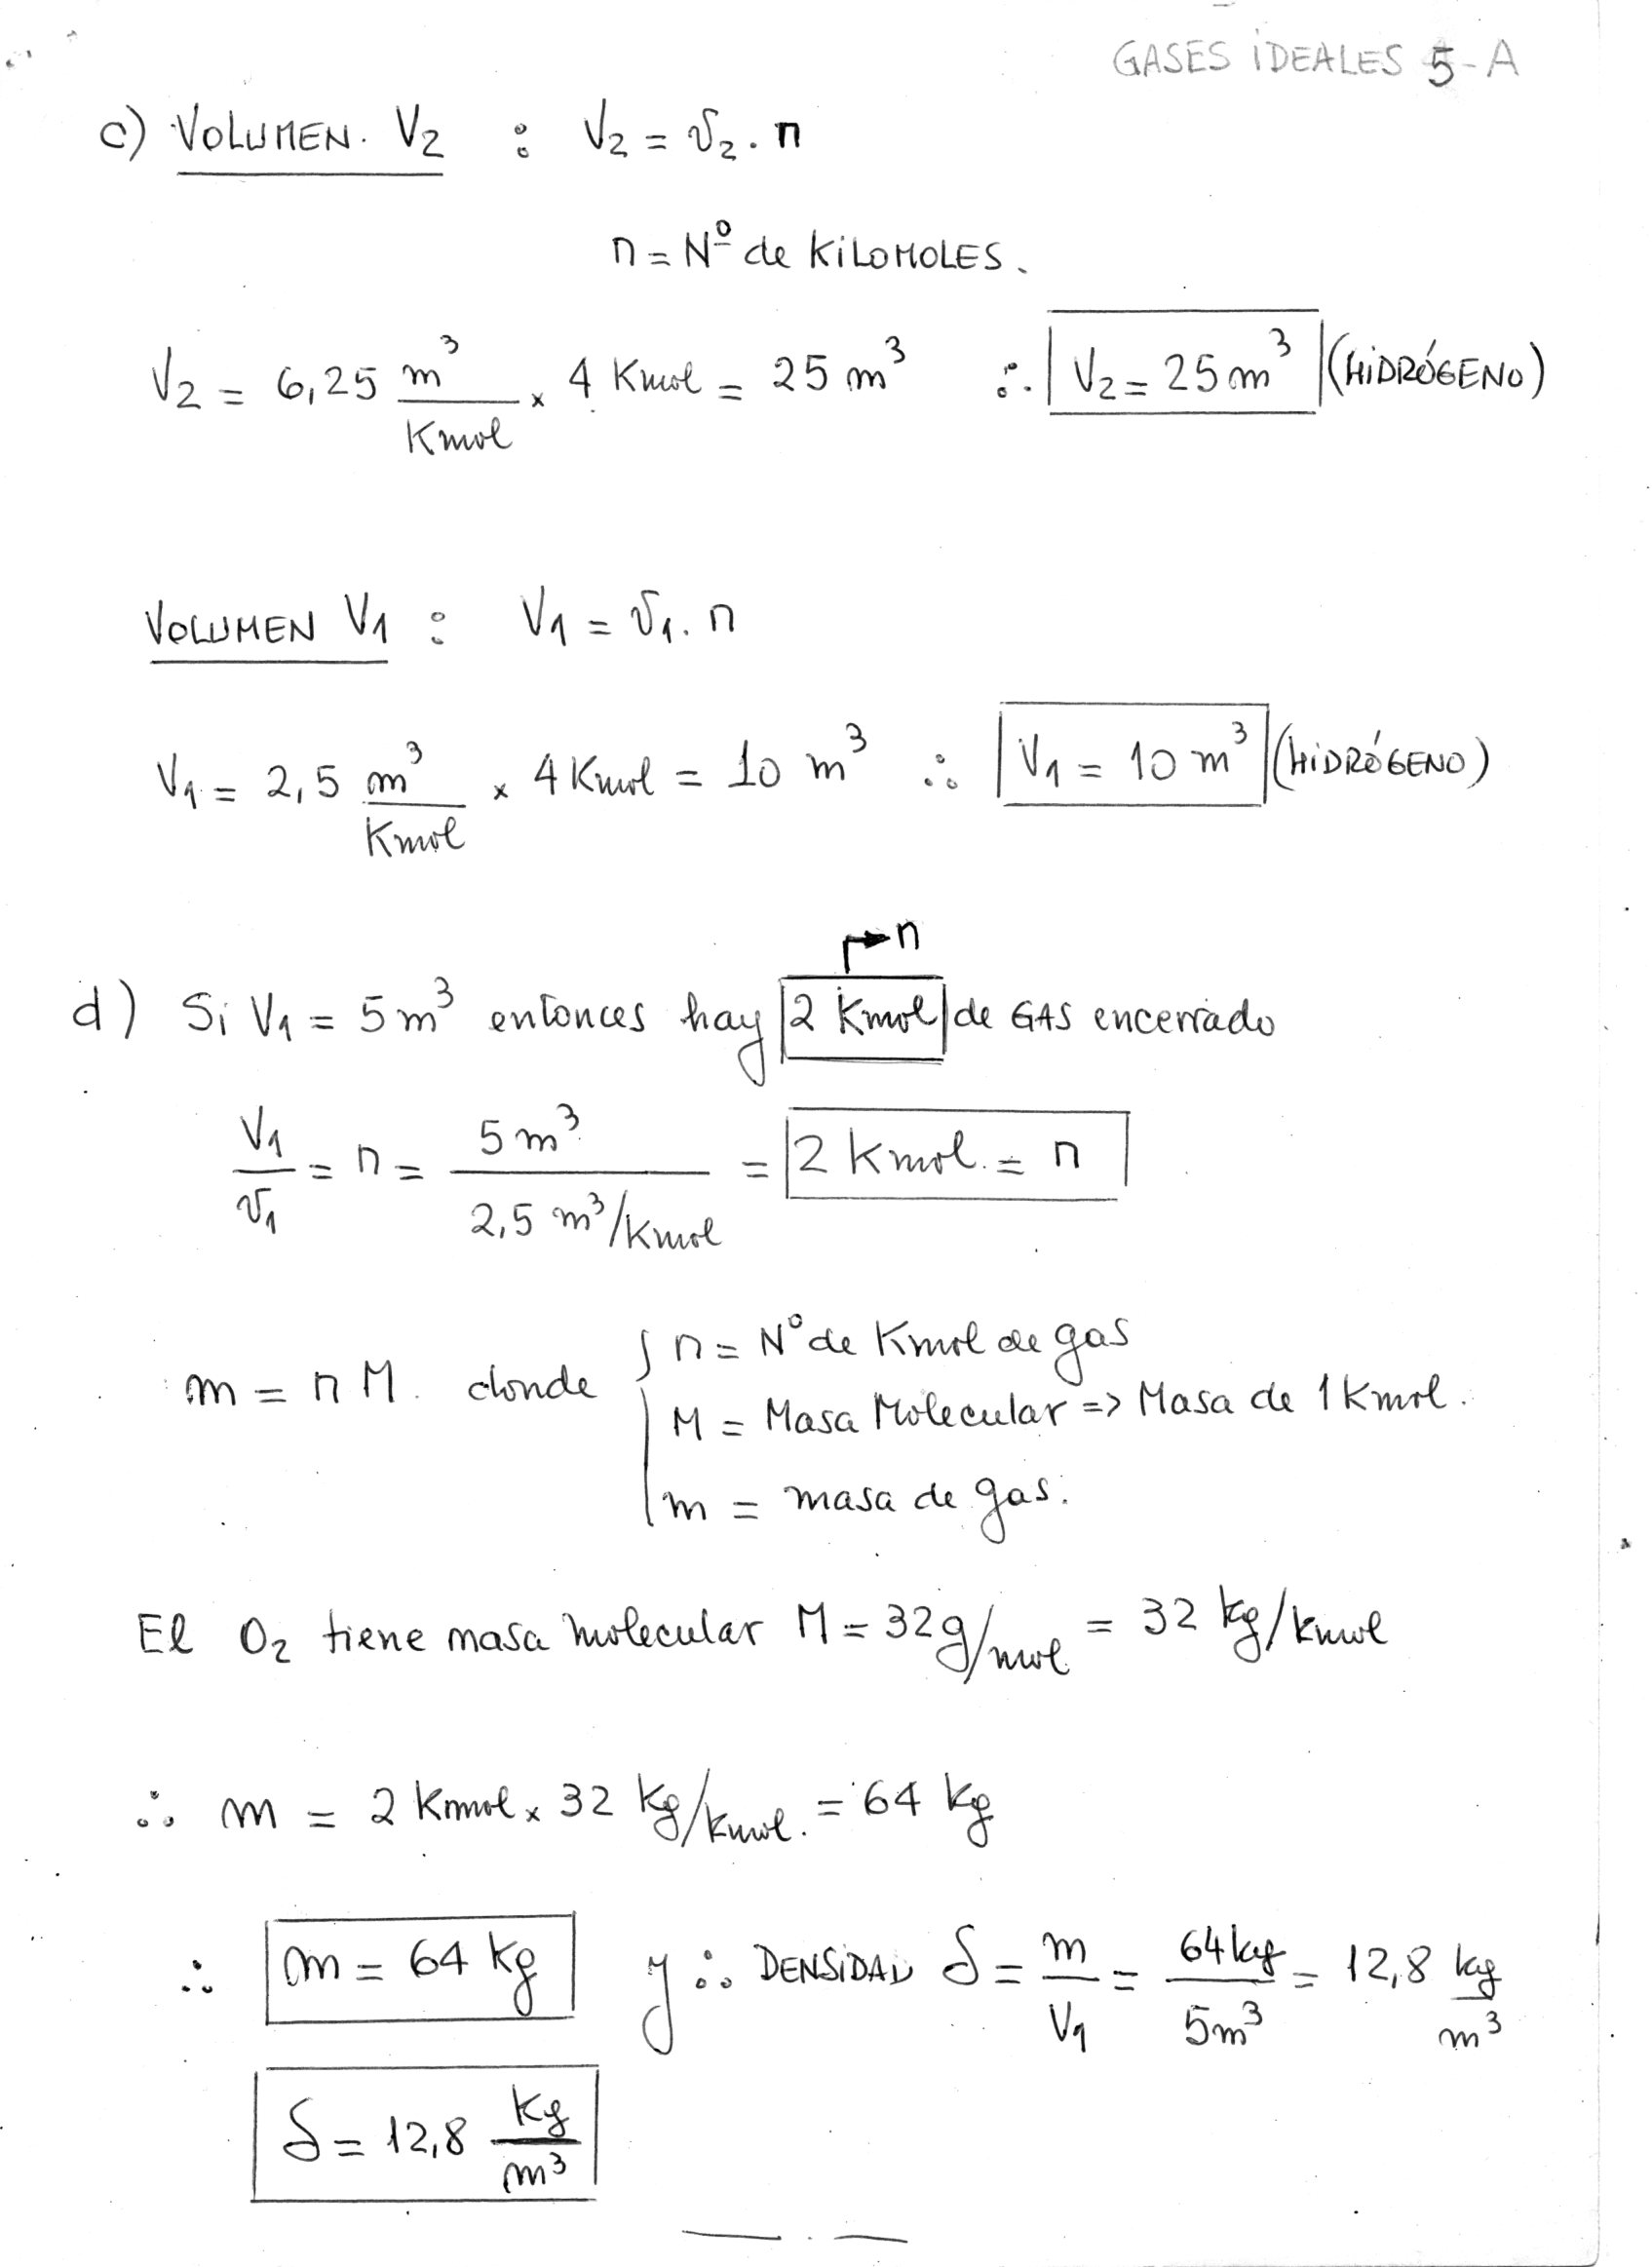 GASES IDEALES 5-A
c) VOLUMEN. V2 : V2 = v2 . n
n = Nº de KILOMOLES.
V2 = 6,25 m³/Kmol × 4 Kmol = 25 m³ ∴ V2 = 25 m³ (HIDRÓGENO)
VOLUMEN V1 : V1 = v1 . n
V1 = 2,5 m³/Kmol × 4 Kmol = 10 m³ ∴ V1 = 10 m³ (HIDRÓGENO)
n
d) Si V1 = 5 m³ entonces hay 2 Kmol de GAS encerrado
V1/v1 = n = 5 m³ / 2,5 m³/Kmol = 2 Kmol. = n
m = n M. donde
n = Nº de Kmol de gas
M = Masa Molecular => Masa de 1 Kmol.
m = masa de gas.
El O2 tiene masa molecular M = 32 g/mol = 32 kg/kmol
∴ m = 2 Kmol × 32 kg/kmol. = 64 kg
∴ m = 64 kg y ∴ DENSIDAD δ = m/V1 = 64 kg/5 m³ = 12,8 kg/m³
δ = 12,8 kg/m³